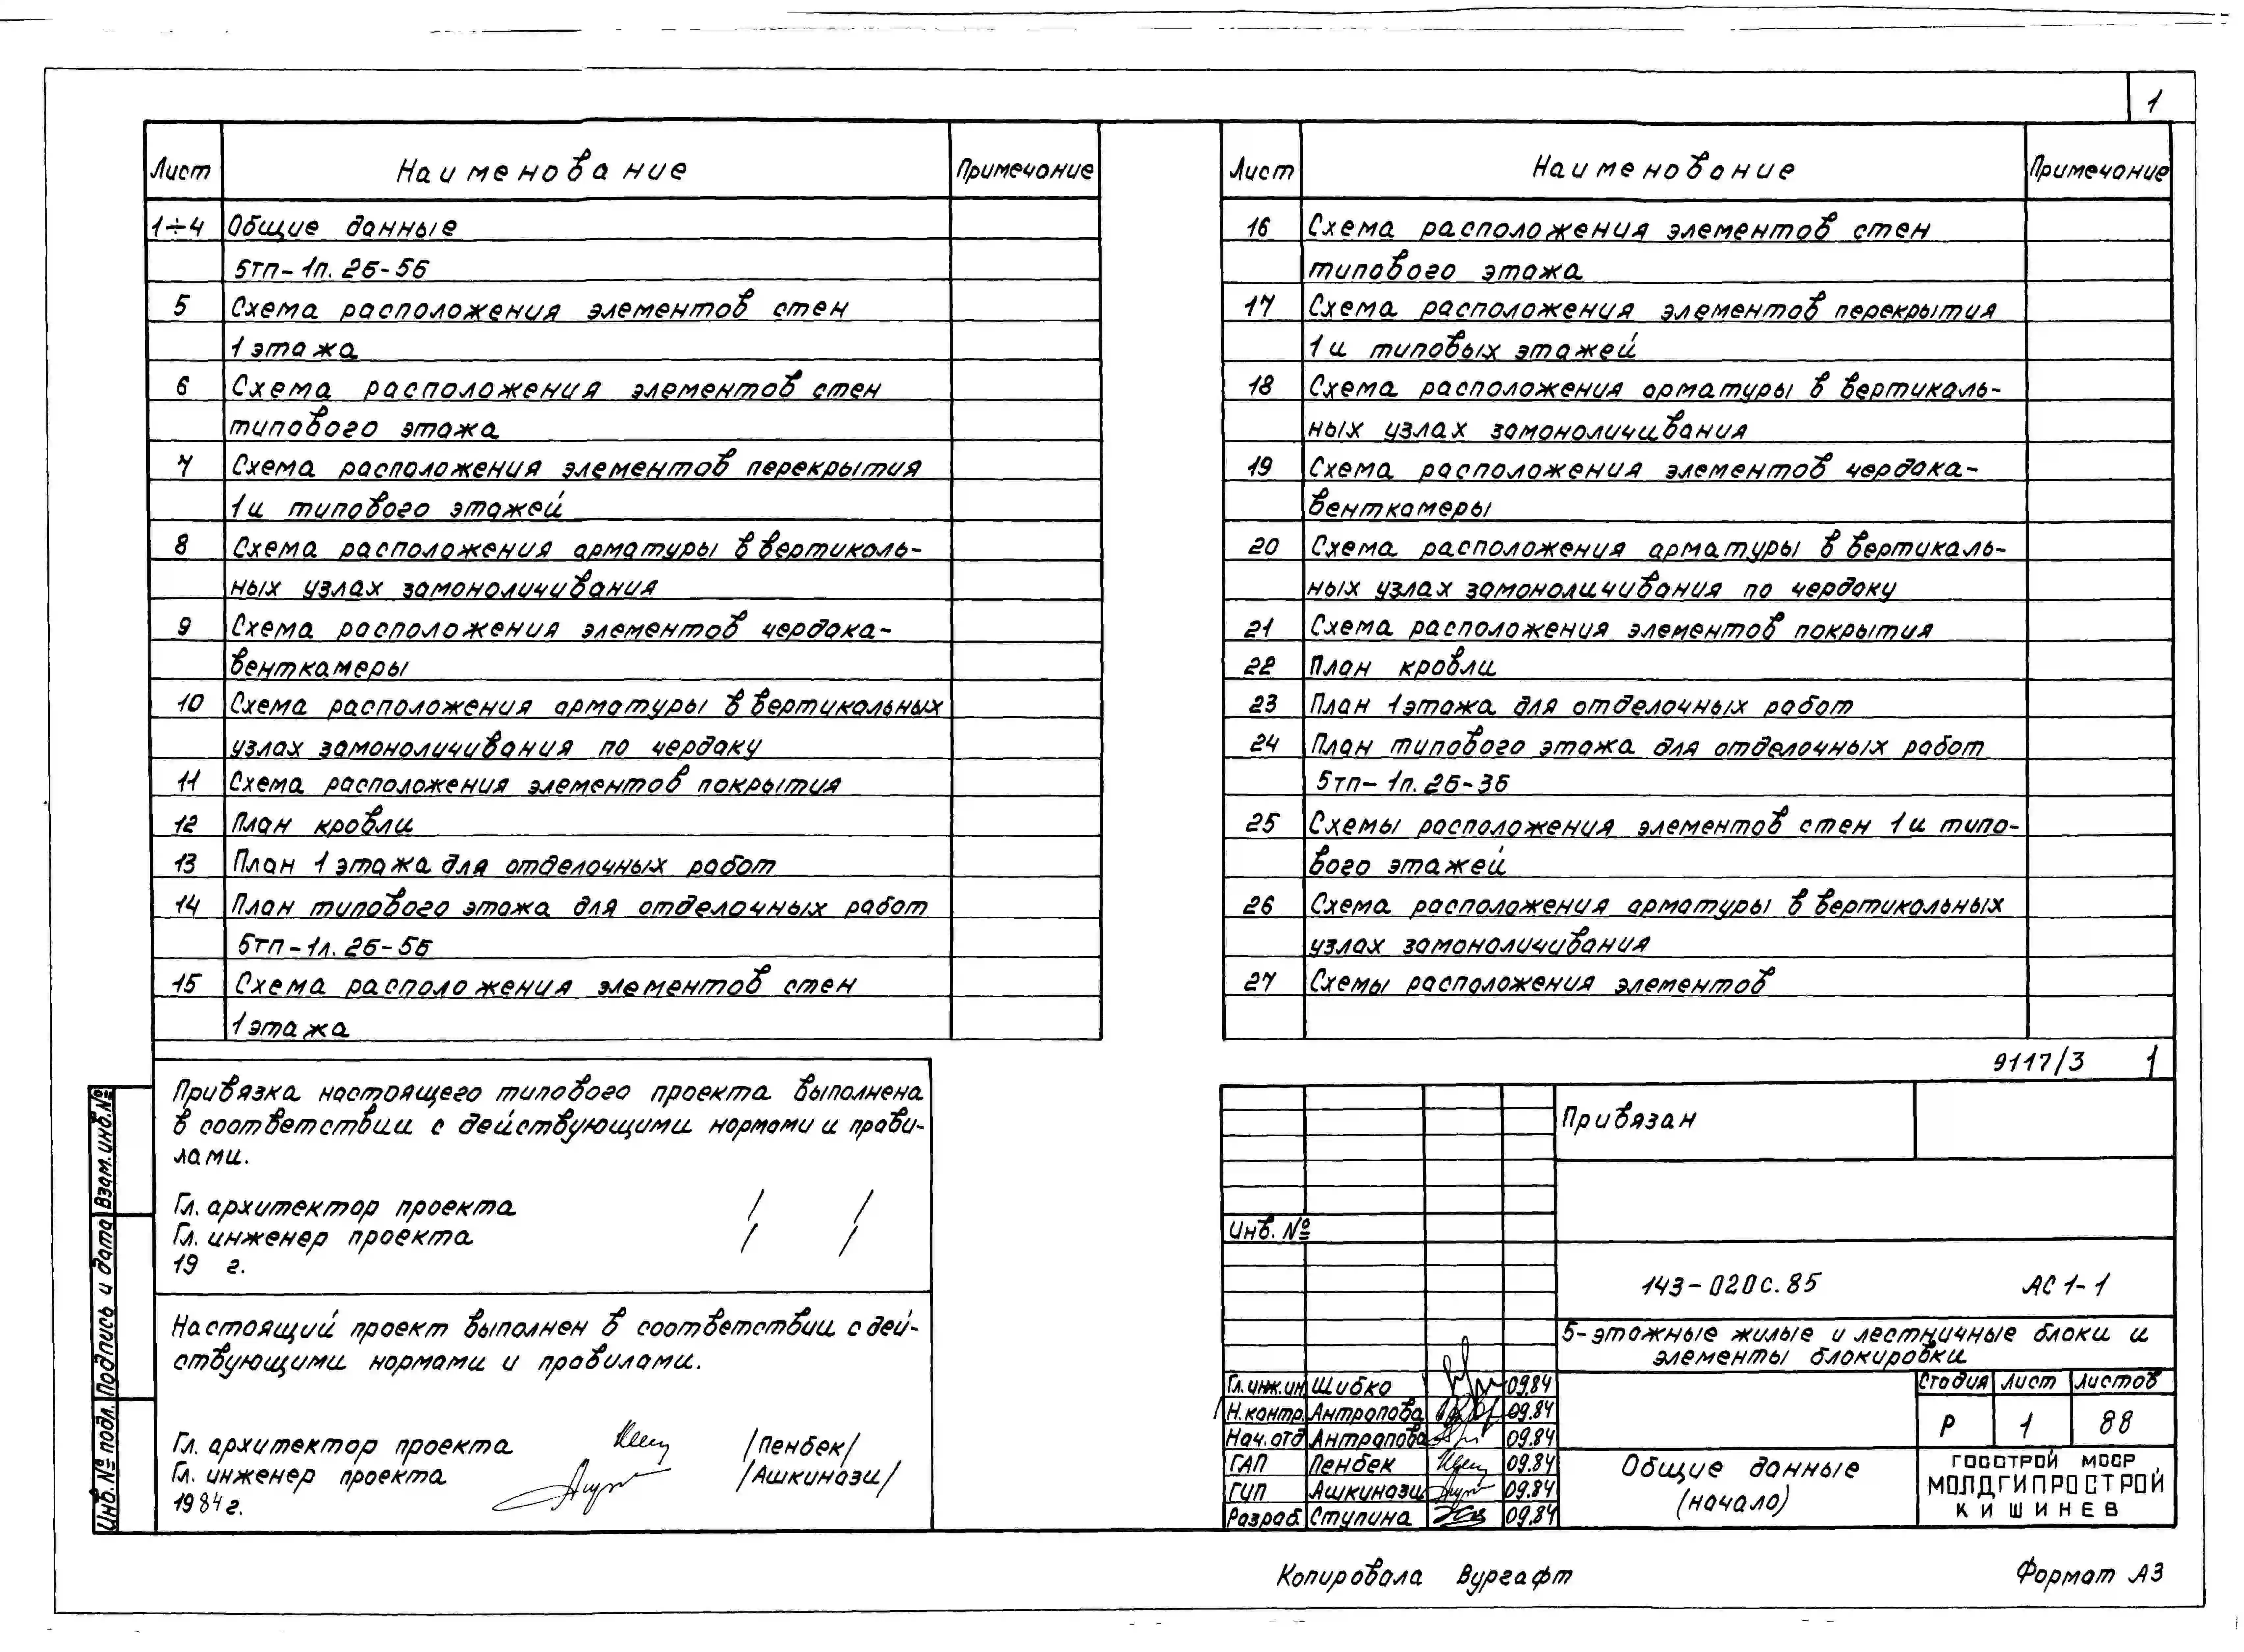 1
Лист Наименование Примечание
1÷4 Общие данные
5тп-1п.2Б-5Б
5 Схема расположения элементов стен
1 этажа
6 Схема расположения элементов стен
типового этажа
7 Схема расположения элементов перекрытия
1 и типового этажей
8 Схема расположения арматуры в вертикаль-
ных узлах замоноличивания
9 Схема расположения элементов чердака-
венткамеры
10 Схема расположения арматуры в вертикальных
узлах замоноличивания по чердаку
11 Схема расположения элементов покрытия
12 План кровли
13 План 1 этажа для отделочных работ
14 План типового этажа для отделочных работ
5тп-1л.2Б-5Б
15 Схема расположения элементов стен
1 этажа
Лист Наименование Примечание
16 Схема расположения элементов стен
типового этажа
17 Схема расположения элементов перекрытия
1 и типовых этажей
18 Схема расположения арматуры в вертикаль-
ных узлах замоноличивания
19 Схема расположения элементов чердака-
венткамеры
20 Схема расположения арматуры в вертикаль-
ных узлах замоноличивания по чердаку
21 Схема расположения элементов покрытия
22 План кровли
23 План 1 этажа для отделочных работ
24 План типового этажа для отделочных работ
5тп-1п.2Б-3Б
25 Схемы расположения элементов стен 1 и типо-
вого этажей
26 Схема расположения арматуры в вертикальных
узлах замоноличивания
27 Схемы расположения элементов
9117/3 1
Привязка настоящего типового проекта выполнена
в соответствии с действующими нормами и прави-
лами.
Гл. архитектор проекта / /
Гл. инженер проекта / /
19 г.
Настоящий проект выполнен в соответствии с дей-
ствующими нормами и правилами.
Гл. архитектор проекта /Пенбек/
Гл. инженер проекта /Ашкинази/
1984 г.
Инв.№ подл. Подпись и дата Взам.инв.№
Привязан
Инв. №
143-020с.85 АС 1-1
5-этажные жилые и лестничные блоки и
элементы блокировки
Гл.инж.ин Шибко 09.84
Н.контр. Антропова 09.84
Нач.отд Антропова 09.84
ГАП Пенбек 09.84
ГИП Ашкинази 09.84
Разраб. Ступина 09.84
Стадия Лист Листов
Р 1 88
Общие данные
(начало)
ГОССТРОЙ МССР
МОЛДГИПРОСТРОЙ
КИШИНЕВ
Копировала Вургафт
Формат А3